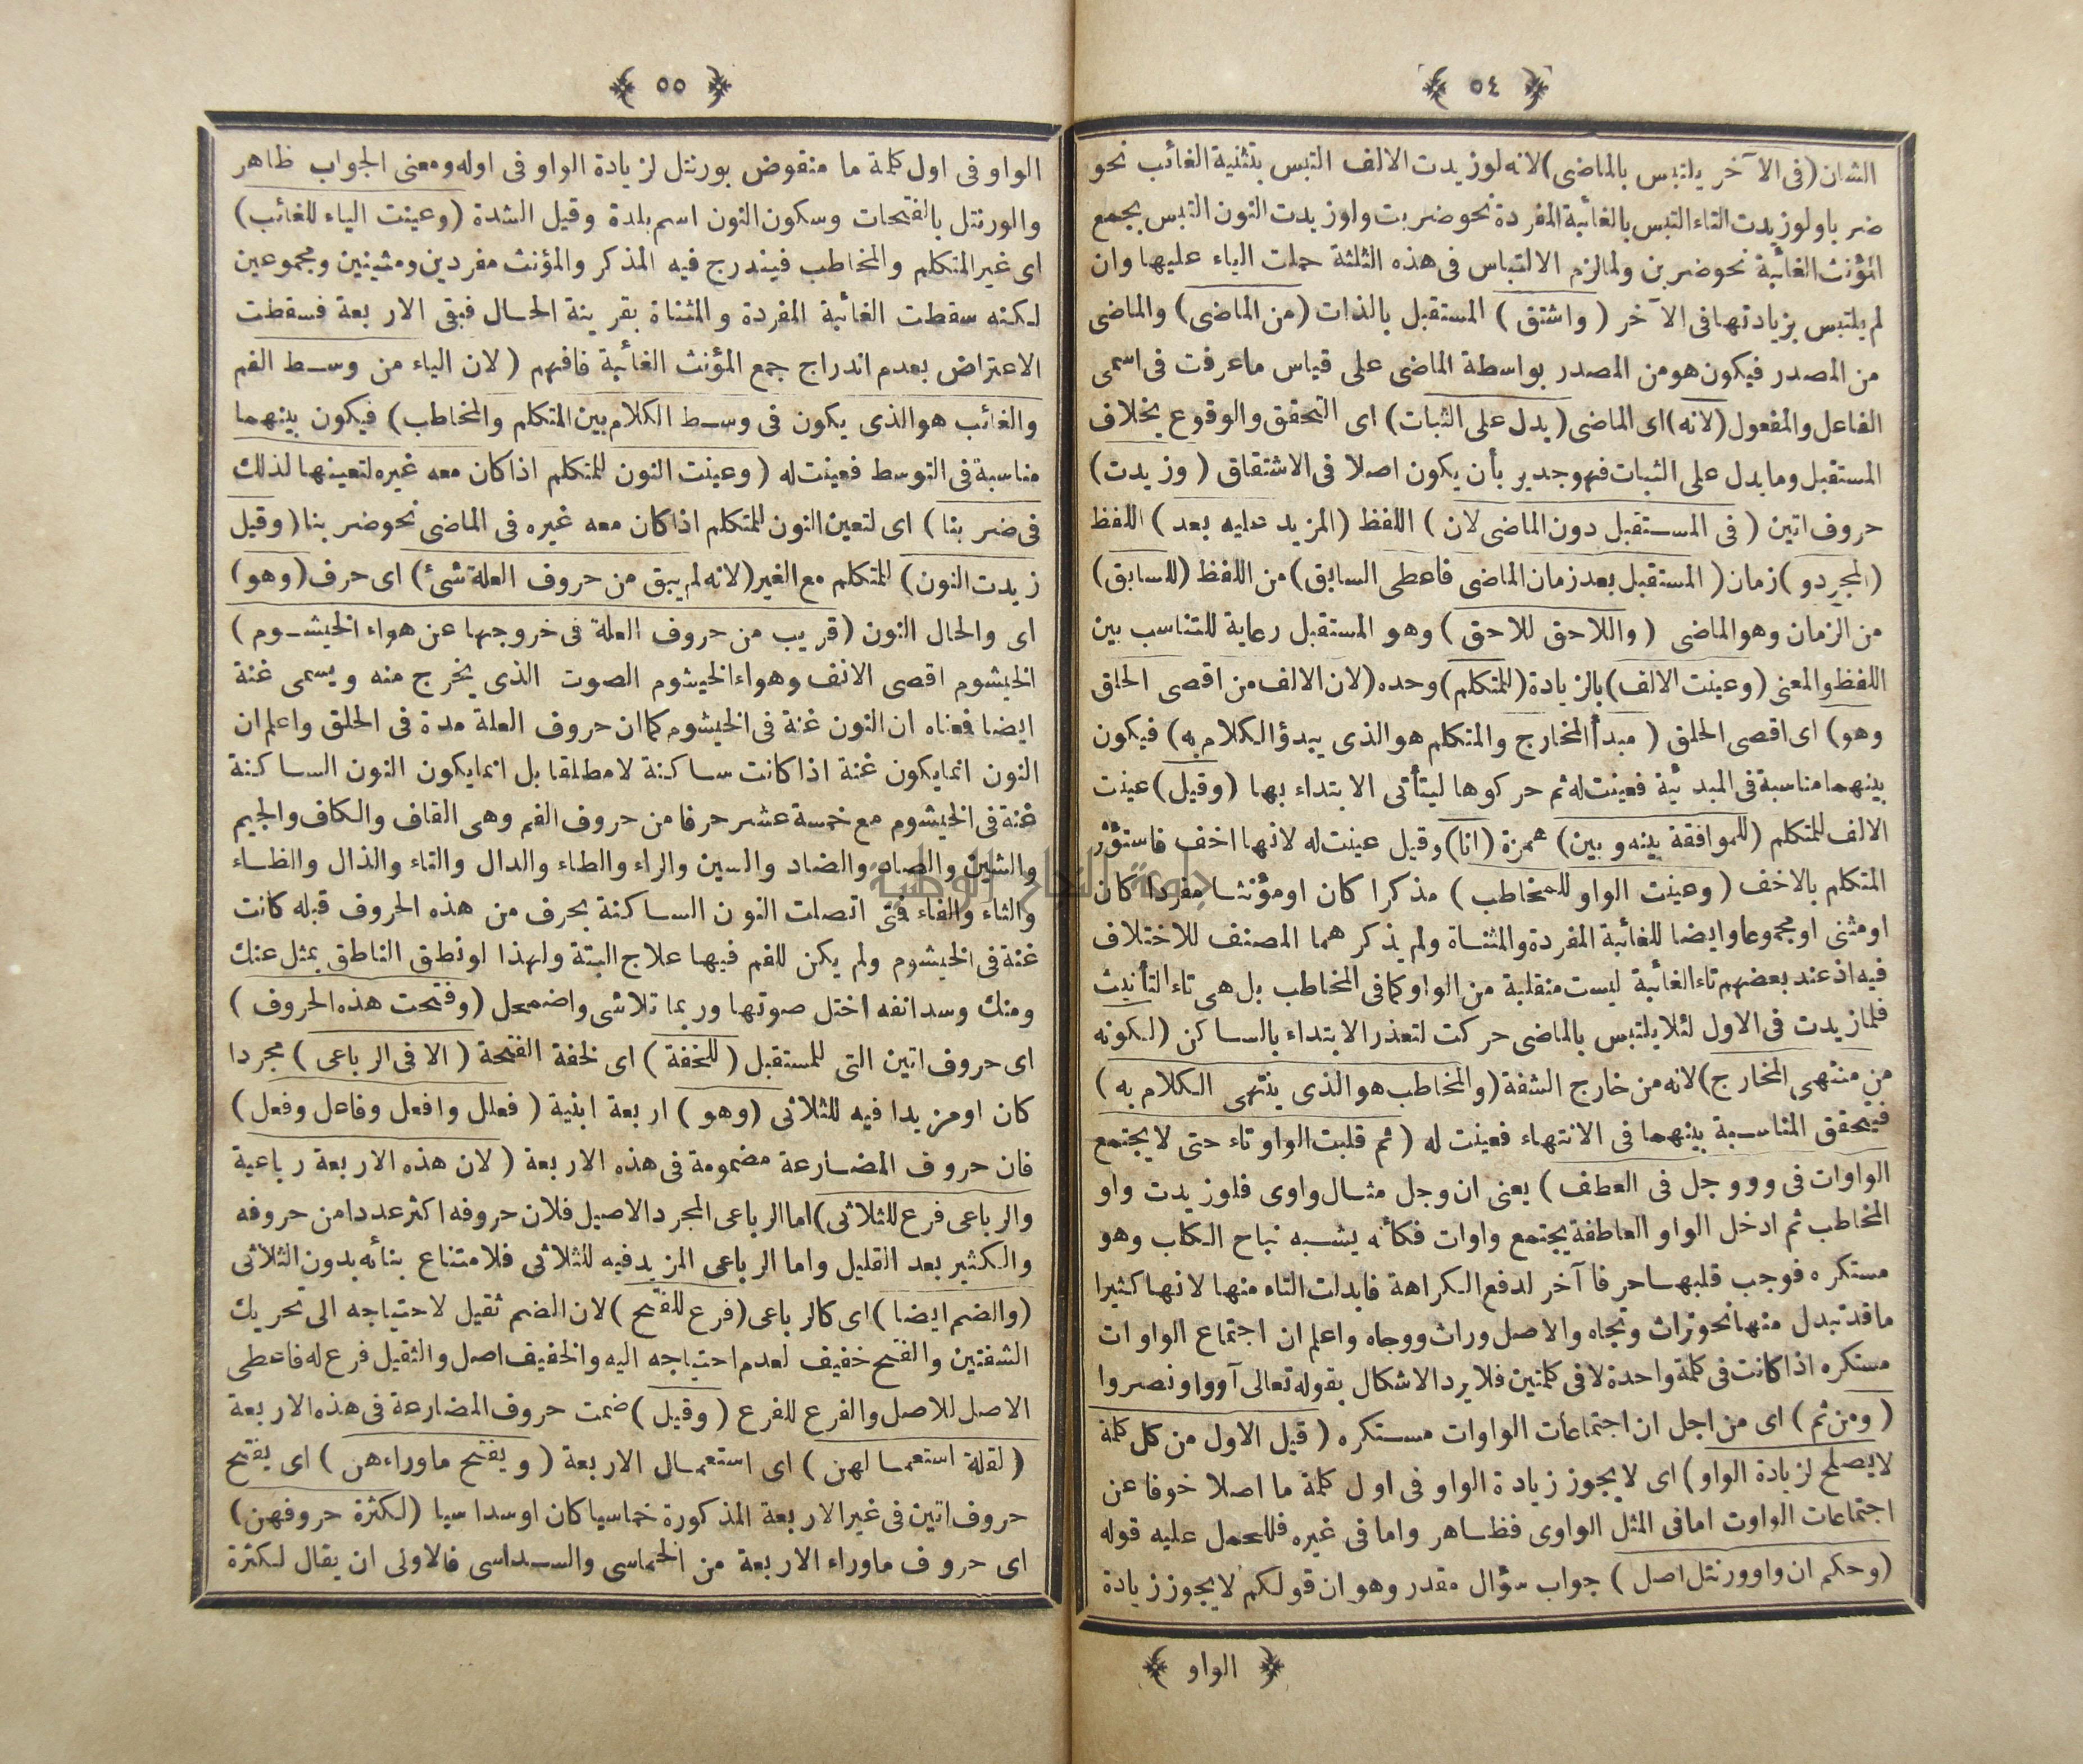 ﴿ ٥٤ ﴾
الشان (فى الآخر يلتبس بالماضى) لانه لوزيدت الالف التبس بتثنية الغائب نحو
ضربا ولوزيدت التاء التبس بالغائبة المفردة نحوضربت ولوزيدت النون التبس بجمع
المؤنث الغائبة نحوضربن ولمالزم الالتباس فى هذه الثلثة حملت الياء عليها وان
لم يلتبس بزيادتها فى الآخر (واشتق) المستقبل بالذات (من الماضى) والماضى
من المصدر فيكون هومن المصدر بواسطة الماضى على قياس ماعرفت فى اسمى
الفاعل والمفعول (لانه) اى الماضى (يدل على الثبات) اى التحقق والوقوع بخلاف
المستقبل ومايدل على الثبات فهوجدير بأن يكون اصلا فى الاشتقاق (وزيدت)
حروف اتين (فى المستقبل دون الماضى لان) اللفظ (المزيد عليه بعد) اللفظ
(المجردو) زمان (المستقبل بعد زمان الماضى فاعطى السابق) من اللفظ (للسابق)
من الزمان وهوالماضى (واللاحق للاحق) وهو المستقبل رعاية للتناسب بين
اللفظ والمعنى (وعينت الالف) بالزيادة (للمتكلم) وحده (لان الالف من اقصى الحلق
وهو) اى اقصى الحلق (مبدأ المخارج والمتكلم هوالذى يبدؤ الكلام به) فيكون
بينهما مناسبة فى المبدئية فعينت له ثم حركوها ليتأتى الابتداء بها (وقيل) عينت
الالف للمتكلم (للموافقة بينه وبين) همزة (انا) وقيل عينت له لانها اخف فاستؤثر
المتكلم بالاخف (وعينت الواو للمخاطب) مذكرا كان اومؤنثا مفردا كان
اومثنى اومجموعا وايضا للغائبة المفردة والمثناة ولم يذكر هما المصنف للاختلاف
فيه اذعند بعضهم تاء الغائبة ليست منقلبة من الواو كمافى المخاطب بل هى تاء التأنيث
فلمازيدت فى الاول لئلا يلتبس بالماضى حركت لتعذر الابتداء بالساكن (لكونه
من منتهى المخارج) لانه من خارج الشفة (والمخاطب هوالذى ينتهى الكلام به)
فيتحقق المناسبة بينهما فى الانتهاء فعينت له (ثم قلبت الواو تاء حتى لايجتمع
الواوات فى وووجل فى العطف) يعنى ان وجل مثال واوى فلوزيدت واو
المخاطب ثم ادخل الواو العاطفة يجتمع واوات فكأنه يشبه نباح الكلب وهو
مستكره فوجب قلبها حرفا آخر لدفع الكراهة فابدلت التاء منها لانها كثيرا
ماقدتبدل منها نحوتراث وتجاه والاصل وراث ووجاه واعلم ان اجتماع الواوات
مستكره اذا كانت فى كلمة واحدة لافى كلمتين فلايرد الاشكال بقوله تعالى آووا ونصروا
(ومن ثم) اى من اجل ان اجتماعات الواوات مستكره (قيل الاول من كل كلمة
لايصلح لزيادة الواو) اى لايجوز زيادة الواو فى اول كلمة ما اصلا خوفا عن
اجتماعات الواوت امافى المثل الواوى فظاهر واما فى غيره فللحمل عليه قوله
(وحكم ان واوورنتل اصل) جواب سؤال مقدر وهو ان قولكم لايجوز زيادة
﴿ الواو ﴾
﴿ ٥٥ ﴾
الواو فى اول كلمة ما منقوض بورنتل لزيادة الواو فى اوله ومعنى الجواب ظاهر
والورنتل بالفتحات وسكون النون اسم بلدة وقيل الشدة (وعينت الياء للغائب)
اى غير المتكلم والمخاطب فيندرج فيه المذكر والمؤنث مفردين ومثنيين ومجموعين
لكنه سقطت الغائبة المفردة والمثناة بقرينة الحال فبقى الاربعة فسقطت
الاعتراض بعدم اندراج جمع المؤنث الغائبة فافهم (لان الياء من وسط الفم
والغائب هوالذى يكون فى وسط الكلام بين المتكلم والمخاطب) فيكون بينهما
مناسبة فى التوسط فعينت له (وعينت النون للمتكلم اذا كان معه غيره لتعينها لذلك
فى ضربنا) اى لتعين النون للمتكلم اذا كان معه غيره فى الماضى نحوضربنا (وقيل
زيدت النون) للمتكلم مع الغير (لانه لم يبق من حروف العلة شئ) اى حرف (وهو)
اى والحال النون (قريب من حروف العلة فى خروجها عن هواء الخيشوم)
الخيشوم اقصى الانف وهواء الخيشوم الصوت الذى يخرج منه ويسمى غنة
ايضا فعناه ان النون غنة فى الخيشوم كماان حروف العلة مدة فى الحلق واعلم ان
النون انما يكون غنة اذا كانت ساكنة لامطلقا بل انما يكون النون الساكنة
غنة فى الخيشوم مع خمسة عشر حرفا من حروف الفم وهى القاف والكاف والجيم
والشين والصاد والضاد والسين والراء والطاء والدال والتاء والذال والظاء
والثاء والفاء فتى اتصلت النون الساكنة بحرف من هذه الحروف قبله كانت
غنة فى الخيشوم ولم يكن للفم فيها علاج البتة ولهذا لونطق الناطق بمثل عنك
ومنك وسد انفه اختل صوتها وربما تلاشى واضمحل (وفتحت هذه الحروف)
اى حروف اتين التى للمستقبل (للخفة) اى لخفة الفتحة (الا فى الرباعى) مجردا
كان اومزيدا فيه للثلاثى (وهو) اربعة ابنية (فعلل وافعل وفاعل وفعل)
فان حروف المضارعة مضمومة فى هذه الاربعة (لان هذه الاربعة رباعية
والرباعى فرع للثلاثى) اما الرباعى المجرد الاصيل فلان حروفه اكثر عددا من حروفه
والكثير بعد القليل واما الرباعى المزيد فيه للثلاثى فلامتناع بنائه بدون الثلاثى
(والضم ايضا) اى كالرباعى (فرع للفتح) لان الضم ثقيل لاحتياجه الى تحريك
الشفتين والفتح خفيف لعدم احتياجه اليه والخفيف اصل والثقيل فرع له فاعطى
الاصل للاصل والفرع للفرع (وقيل) ضمت حروف المضارعة فى هذه الاربعة
(لقلة استعمالهن) اى استعمال الاربعة (ويفتح ماوراءهن) اى يفتح
حروف اتين فى غير الاربعة المذكورة خماسيا كان اوسداسيا (لكثرة حروفهن)
اى حروف ماوراء الاربعة من الخماسى والسداسى فالاولى ان يقال لكثرة
جامعة النجاح الوطنية